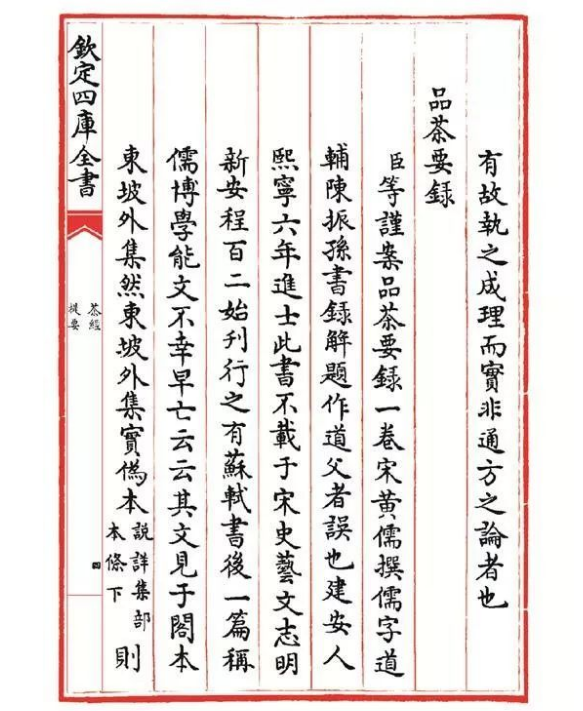 有故執之成理而實非通方之論者也
品茶要録
臣等謹案品茶要録一卷宋黄儒撰儒字道
輔陳振孫書録解題作道父者誤也建安人
熙寧六年進士此書不載于宋史藝文志明
新安程百二始刋行之有蘇軾書後一篇稱
儒博學能文不幸早亡云云其文見于閣本
東坡外集然東坡外集實偽本説詳集部本條下則
欽定四庫全書
茶經
提要
四